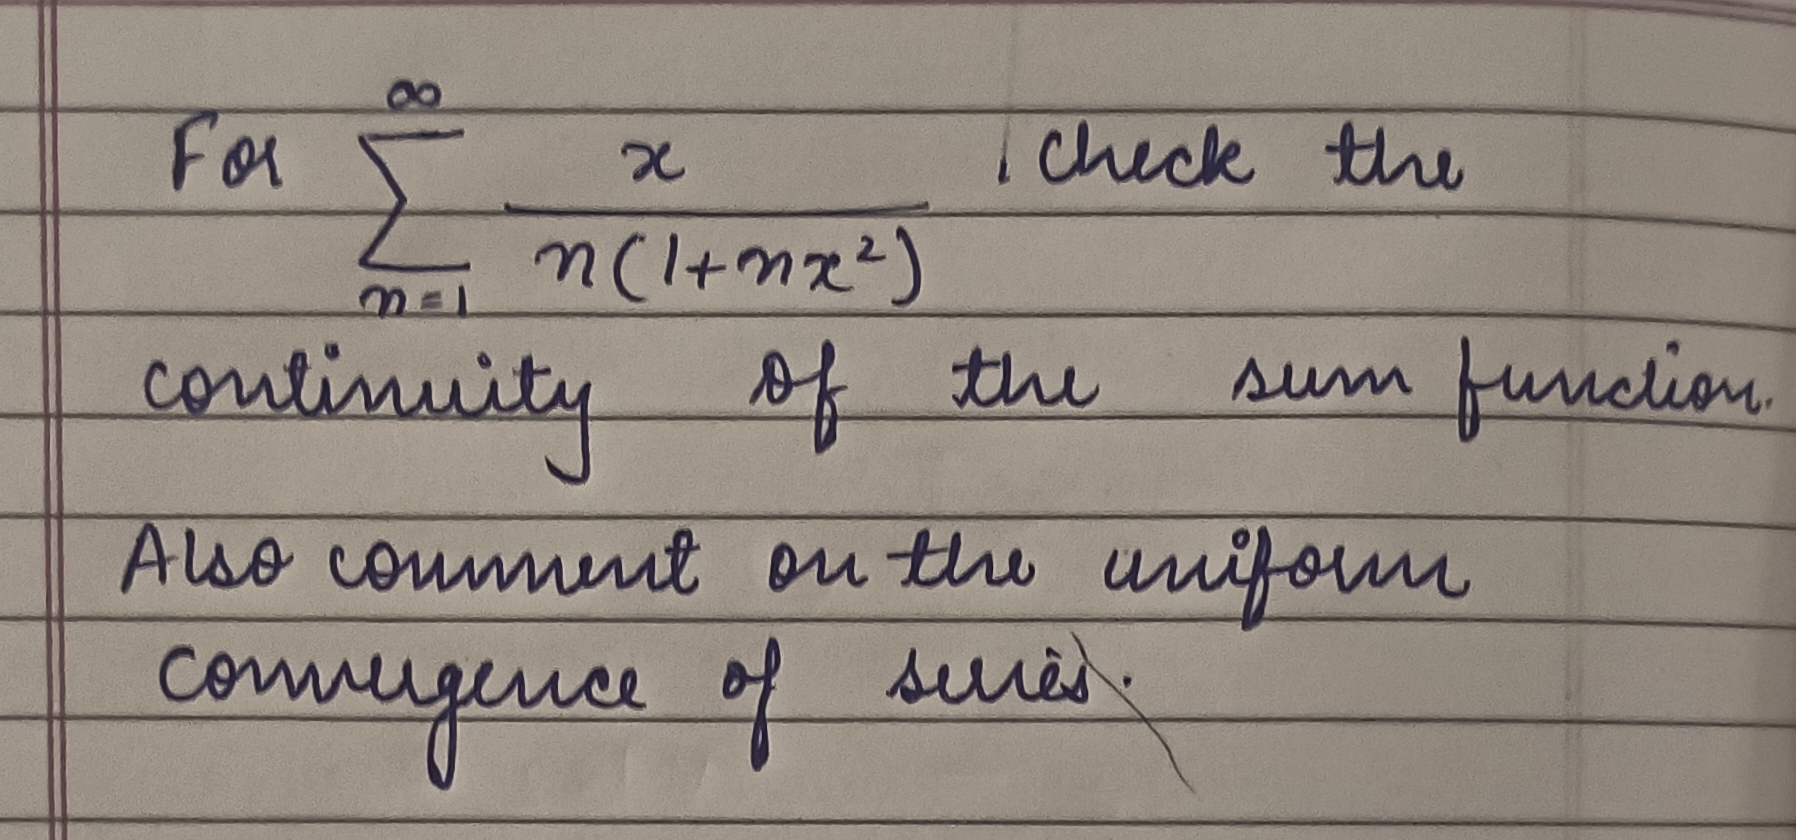 For ∞ ∑ n=1 x / n(1+nx²) , check the
continuity of the sum function.
Also comment on the uniform
convergence of series.